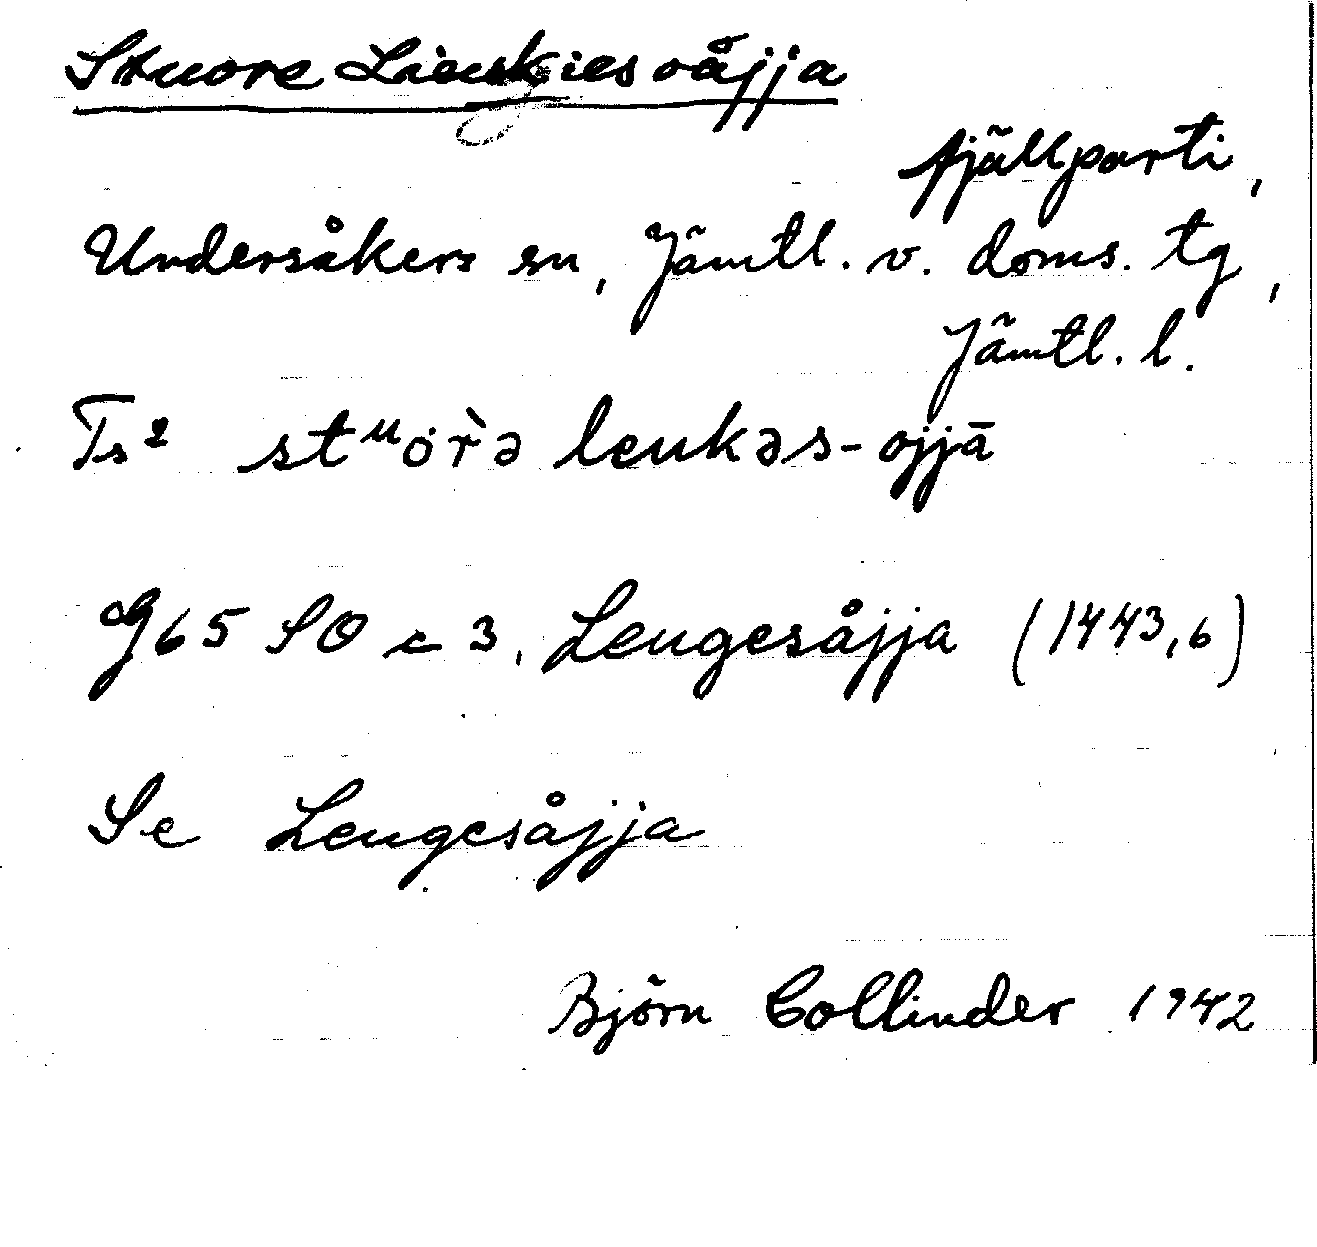 Stuore Lieukiesoåjja
fjällparti,
Undersåkers sn, Jämtl. v. doms. tg,
Jämtl. l.
Ts² stᵘȯr̀ə leukəs-ojjā
G65 SO c 3, Leugesåjja (1443,6)
Se Leugesåjja
Björn Collinder 1942